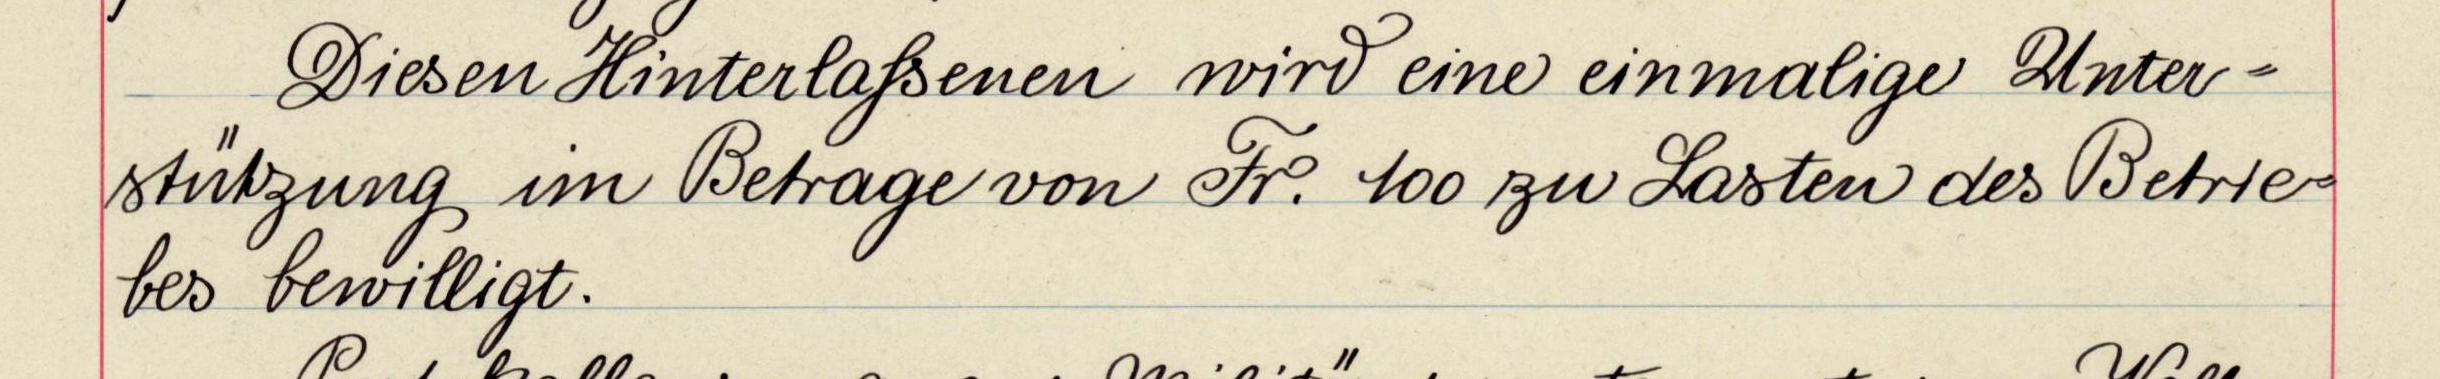 Diesen Hinterlaßenen wird eine einmalige Unter-
stützung im Betrage von Fr. 100 zu Lasten des Betrie-
bes bewilligt.